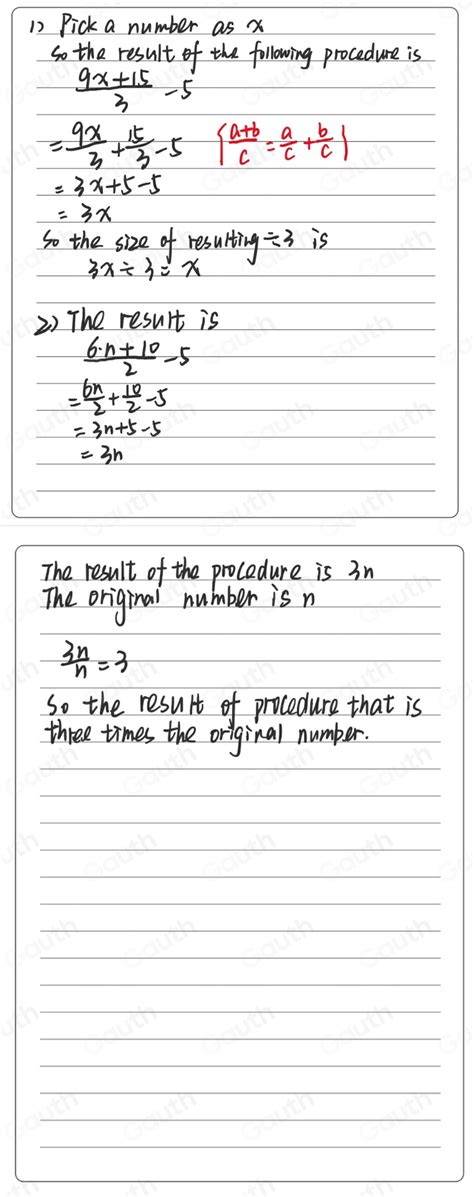 1) Pick a number as x
So the result of the following procedure is
(9x+15)/3 - 5
= 9x/3 + 15/3 - 5 { (a+b)/c = a/c + b/c }
= 3x+5-5
= 3x
So the size of resulting ÷3 is
3x ÷ 3 = x
2) The result is
(6·n+10)/2 - 5
= 6n/2 + 10/2 - 5
= 3n+5-5
= 3n
The result of the procedure is 3n
The original number is n
3n/n = 3
So the result of procedure that is
three times the original number.